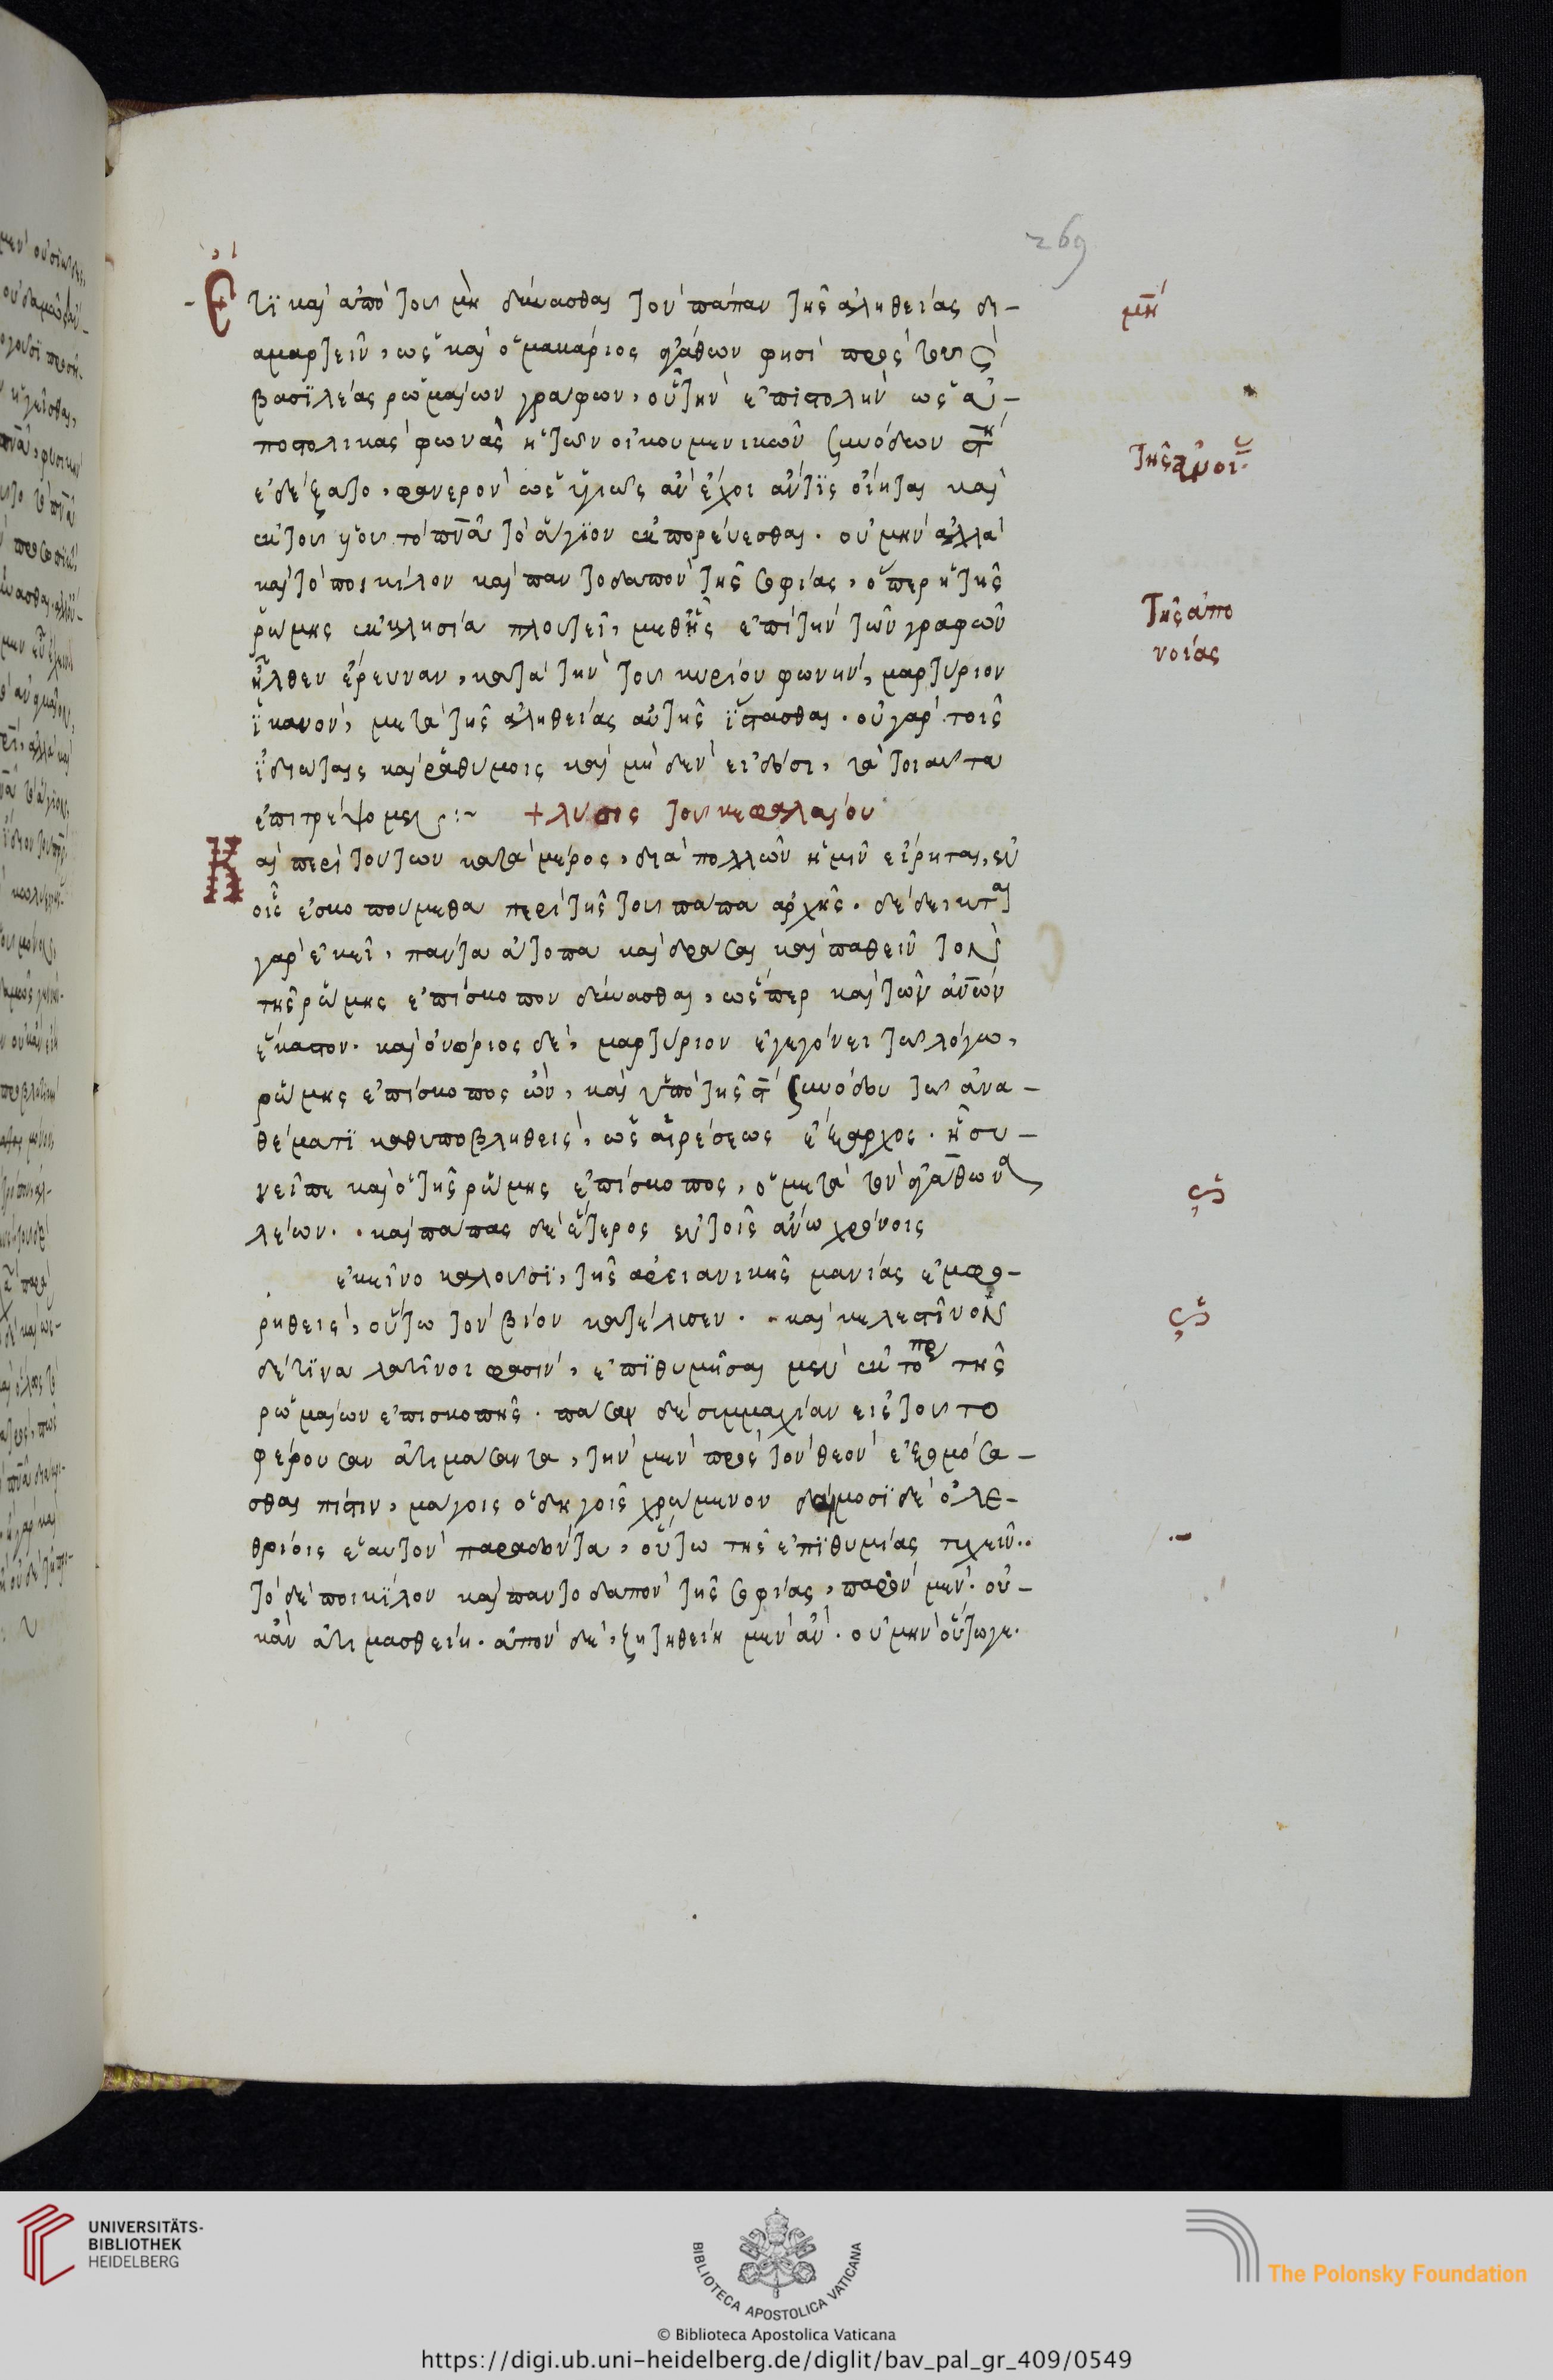 269
Ἔτι καὶ ἀπὸ τοῦ μὴ δύνασθαι τὸν πάπαν τῆς ἀληθείας δι-
αμαρτεῖν, ὡς καὶ ὁ μακάριος ἀγάθων φησὶ πρὸς τοὺς
βασιλέας ῥωμαίων γράφων, οὗ τὴν ἐπιστολὴν ὡς ἀ-
ποστολικὰς φωνὰς ἡ τῶν οἰκουμενικῶν συνόδων ϛη
ἐδέξατο, φανερὸν ὡς οὕτως ἂν ἔχοι αὐτῆς καὶ
ἐκ τοῦ υἱοῦ τὸ πνᾶ τὸ ἅγιον ἐκπορεύεσθαι. οὐ μὴν ἀλλὰ
καὶ τὸ ποικίλον καὶ παντοδαπὸν τῆς σοφίας, ὅπερ ἡ τῆς
ῥώμης ἐκκλησία πλουτεῖ, μεθ' ἧς ἐπὶ τὴν τῶν γραφῶν
ἦλθεν ἔρευναν, κατὰ τὴν τοῦ κυρίου φωνὴν, μαρτύριον
ἱκανὸν, μετὰ τῆς ἀληθείας αὐτῆς ἵστασθαι. οὐ γὰρ τοῖς
ἰδιώταις καὶ ῥαθύμοις καὶ μηδὲν εἰδόσι, τὰ τοιαῦτα
ἐπιτρέψομεν :~ + λύσις τοῦ κεφαλαίου
Καὶ περὶ τούτων κατὰ μέρος, διὰ πολλῶν ἡμῖν εἴρηται, ἐν
οἷς ἐσκοπούμεθα περὶ τῆς τοῦ πάπα ἀρχῆς. δέδεικται
γὰρ ἐκεῖ, πάντα ἄτοπα καὶ δρᾶσαι καὶ παθεῖν τὸν
τῆς ῥώμης ἐπίσκοπον δύνασθαι, ὥσπερ καὶ τῶν ἀνῶν
ἕκαστον. καὶ ὀνώριος δὲ, μαρτύριον ἐγεγόνει τῶ λόγω,
ῥώμης ἐπίσκοπος ὢν, καὶ ὑπὸ τῆς ϛ συνόδου τῶ ἀνα-
θέματι καθυποβληθεὶς, ὡς αἱρέσεως ἔξαρχος. ᾗ συ-
νεῖπε καὶ ὁ τῆς ῥώμης ἐπίσκοπος, ὁ μετὰ τὸν ἀγάθωνα
λέων. καὶ πάπας δὲ ἕτερος ἐν τοῖς ἄνω χρόνοις
ἐκεῖνο καλοῦσι, τῆς ἀρειανικῆς μανίας ἐμφο-
ρηθεὶς, οὕτω τὸν βίον κατέλυσεν. καὶ κελεστῖνον
δέ τινα λατῖνοι φασὶν, ἐπιθυμῆσαι μὲν ἐκ τῆς
ῥωμαίων ἐπισκοπῆς. πᾶσαν δὲ συμμαχίαν εἰς τοῦτο
φέρουσαν ἀτιμάσαντα, τὴν μὲν πρὸς τὸν θεὸν ἐξομόσα-
σθαι πίστιν, μάγοις ὁδηγοῖς χρώμενον δαίμοσι δὲ ὀλε-
θρίοις ἑαυτὸν παραδόντα, οὕτω τῆς ἐπιθυμίας τυχεῖν..
τὸ δὲ ποικίλον καὶ παντοδαπὸν τῆς σοφίας, παρὸν μὲν. οὐ-
κ ἂν ἀτιμασθείη. ἀπὸν δὲ, ζητηθείη μὲν ἄν. οὐ μὴν οὕτωγε.
μη
τῆς
τῆς ἀπο
νοίας
UNIVERSITÄTS-
BIBLIOTHEK
HEIDELBERG
BIBLIOTECA APOSTOLICA VATICANA
The Polonsky Foundation
© Biblioteca Apostolica Vaticana
https://digi.ub.uni-heidelberg.de/diglit/bav_pal_gr_409/0549